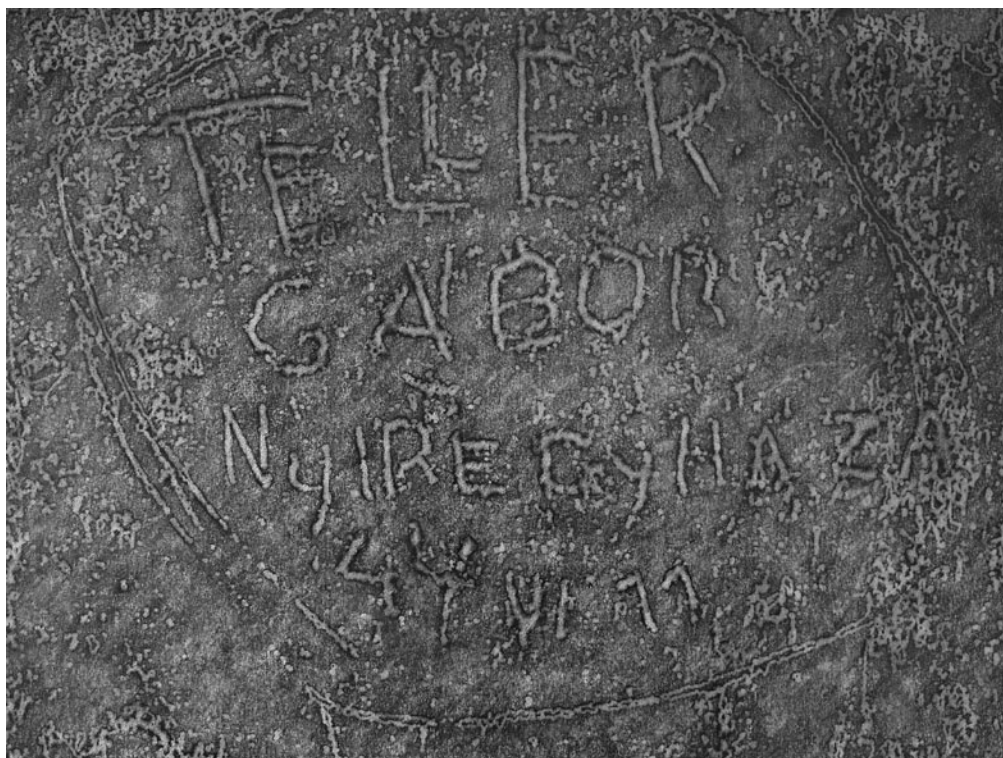 TELLER
GABOR
NYIREGYHAZA
44 VI 11